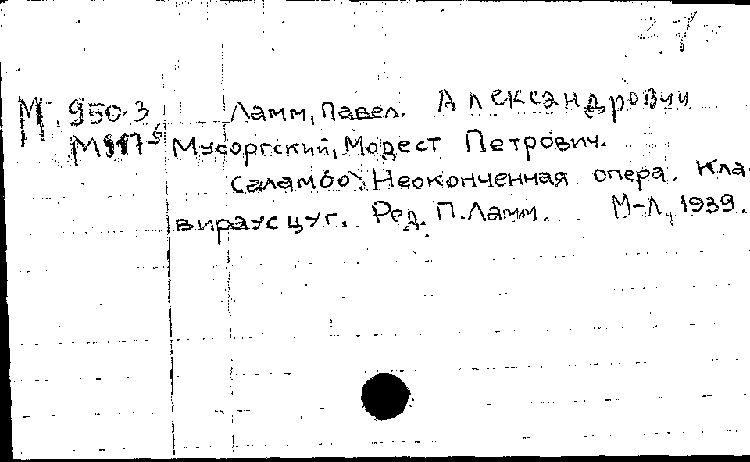 М. 950.3 Ламм, Павел. Александрович
М917-б Мусоргский, Модест Петрович.
Саламбо. Неоконченная опера. Кла-
вираусцуг. Ред. П. Ламм. М-Л, 1939.